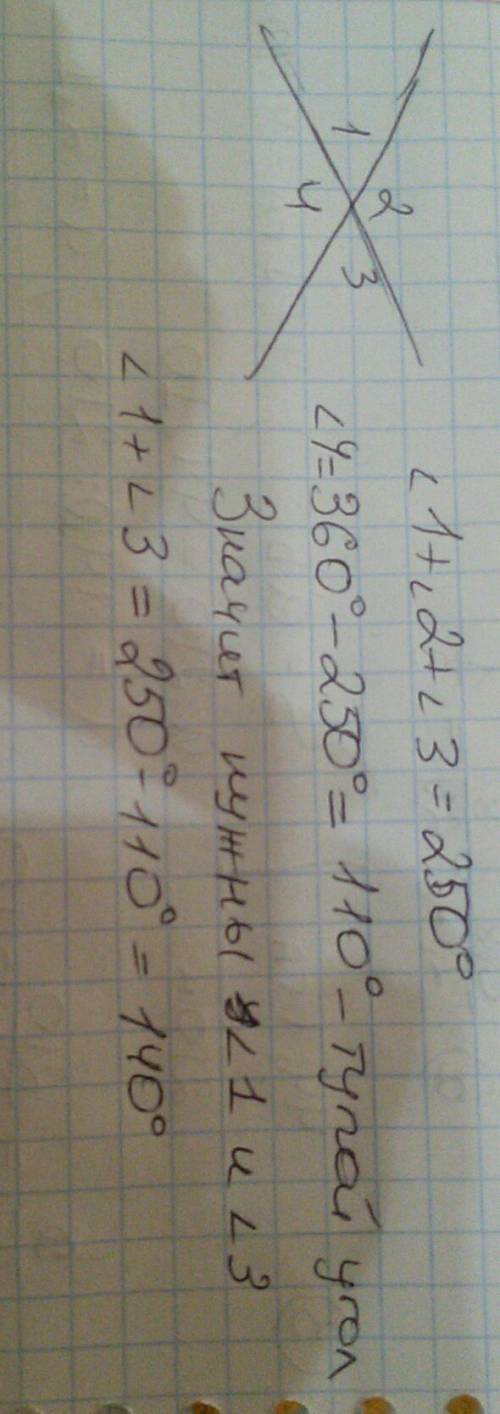 1
2
3
4
∠1+∠2+∠3=250°
∠4=360°-250°=110°-тупой угол
Значит нужны ∠1 и ∠3
∠1+∠3=250°-110°=140°